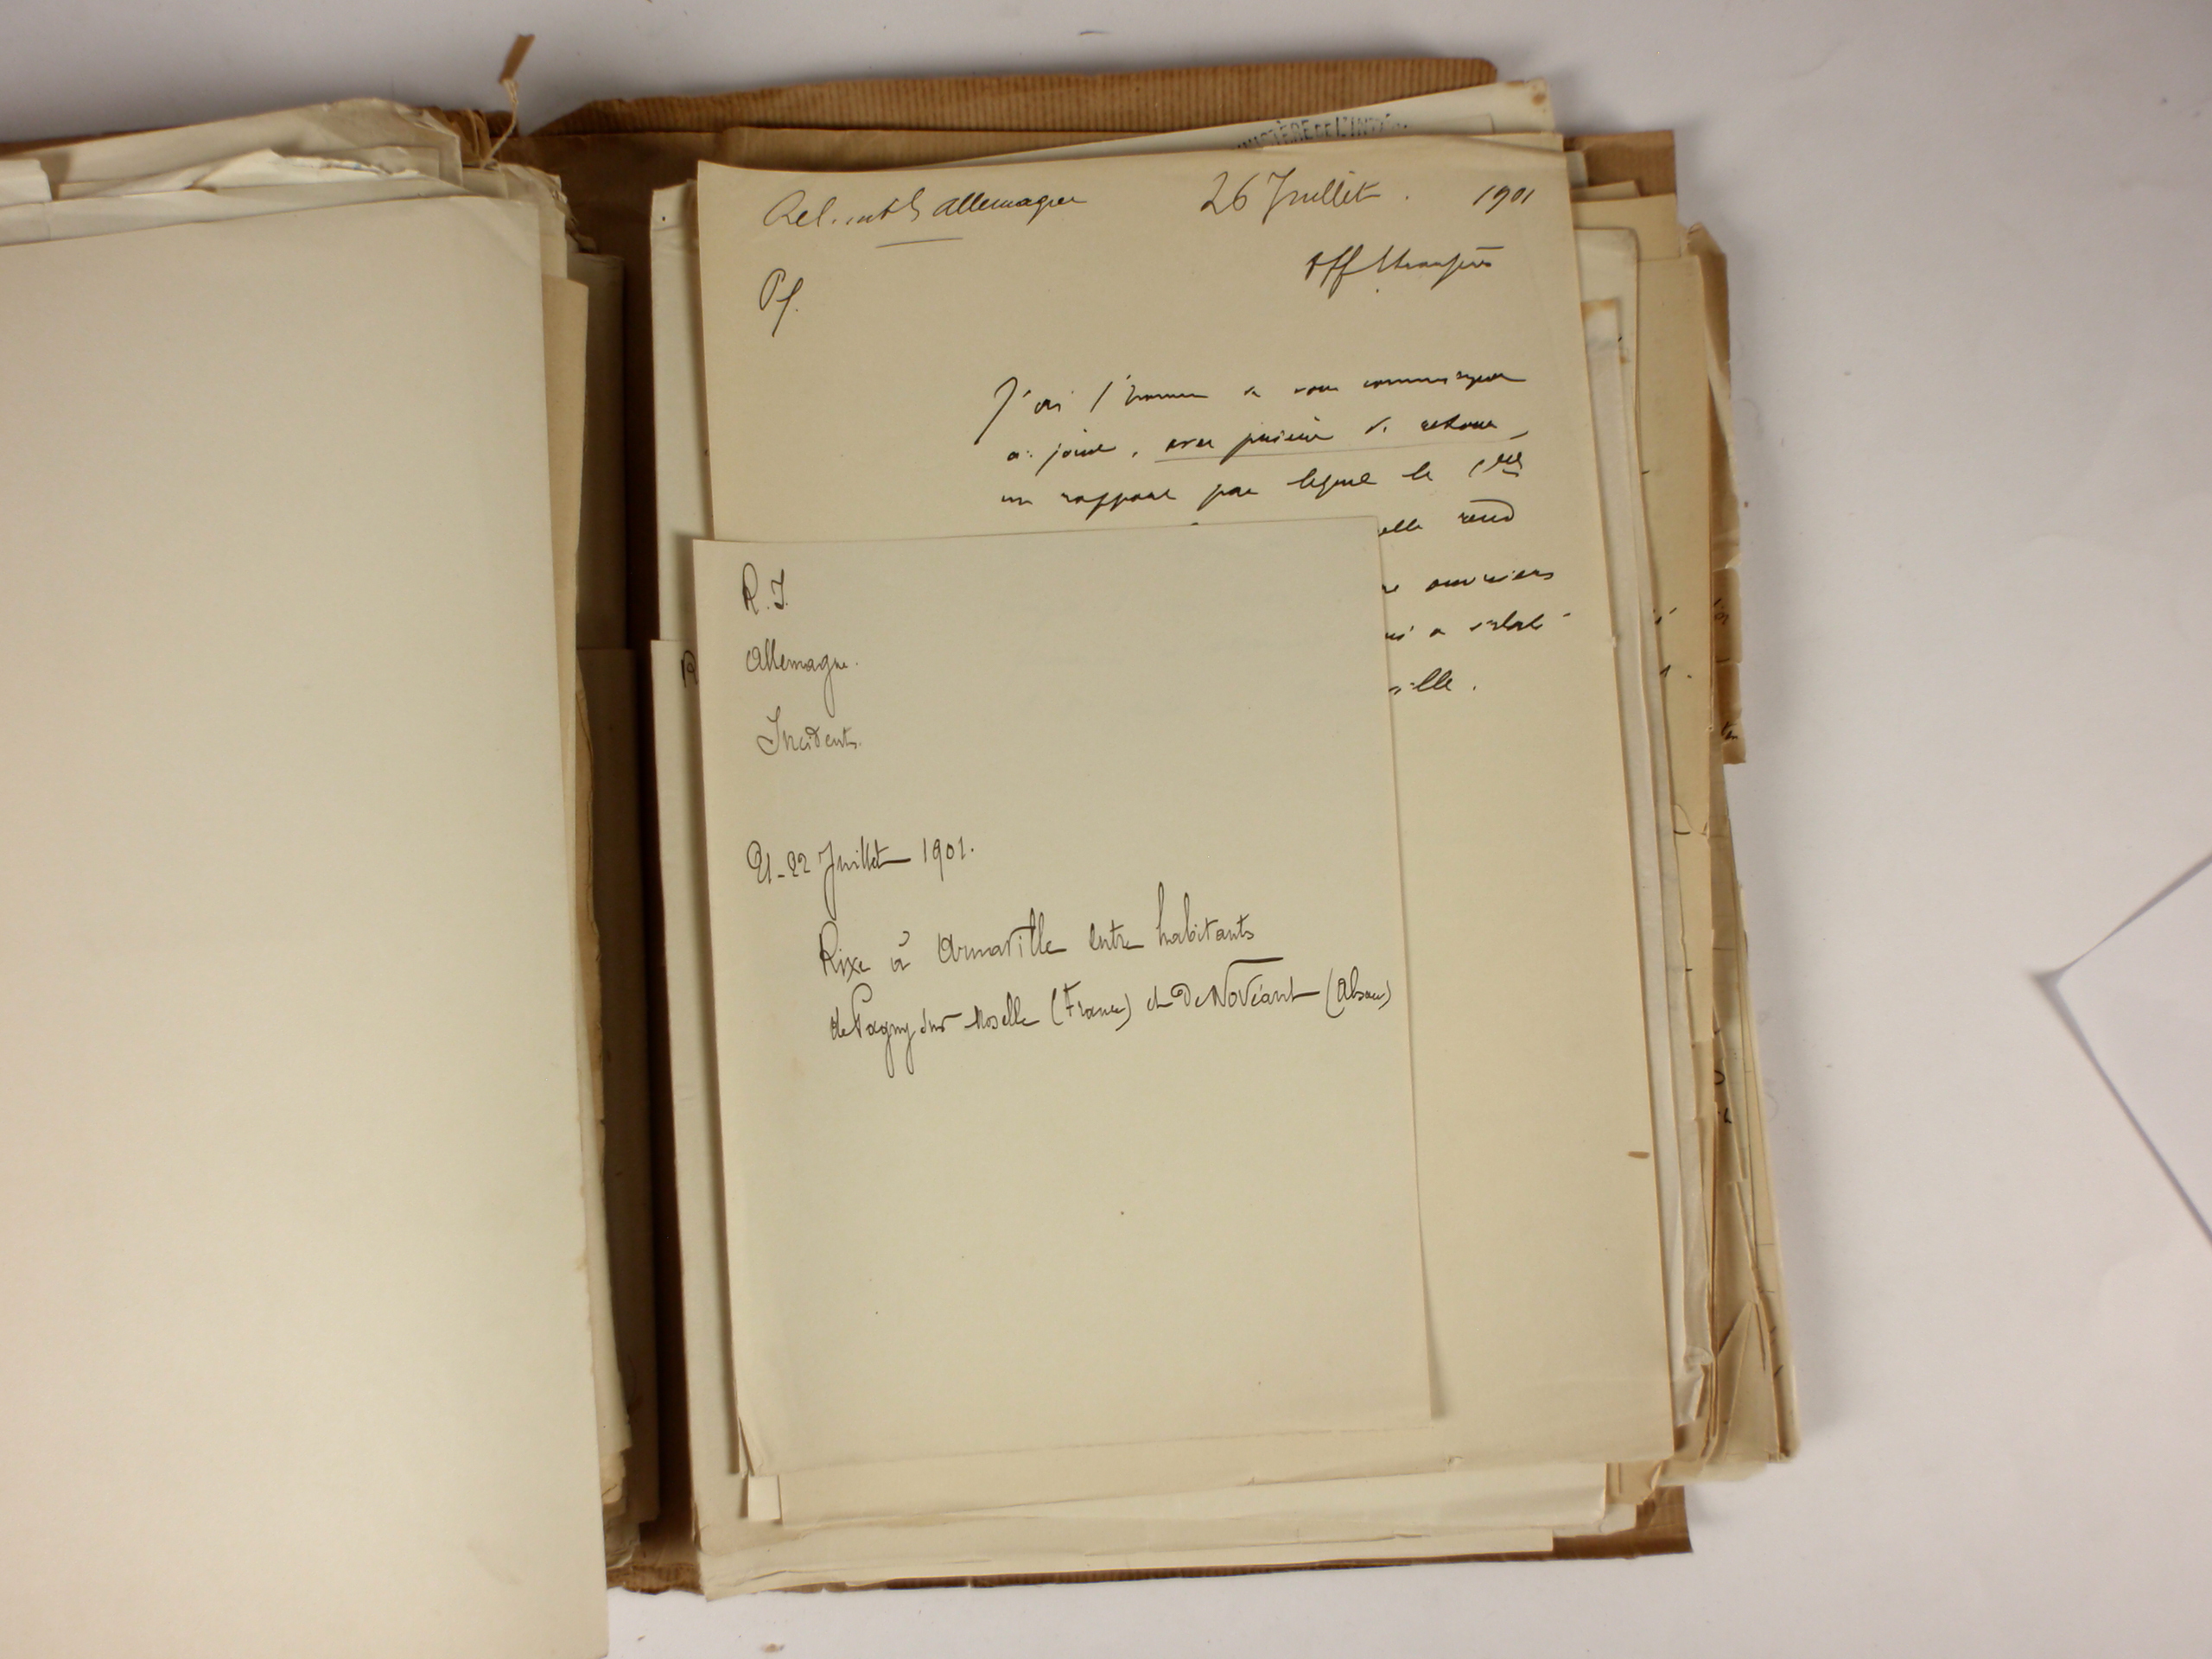 MINISTÈRE DE L'INTÉ
Rel. intles Allemagne
26 Juillet 1901
Aff Etrangères
Pf.
J'ai l'honneur de vous communiquer
ci-joint, avec prière de retour,
un rapport par lequel le Préf
elle rend
ouvriers
a éclaté
ville.
R. I.
Allemagne.
Incidents.
21-22 Juillet 1901.
Rixe à Arnaville entre habitants
de Pagny sur Moselle (France) et de Novéant (Alsace)